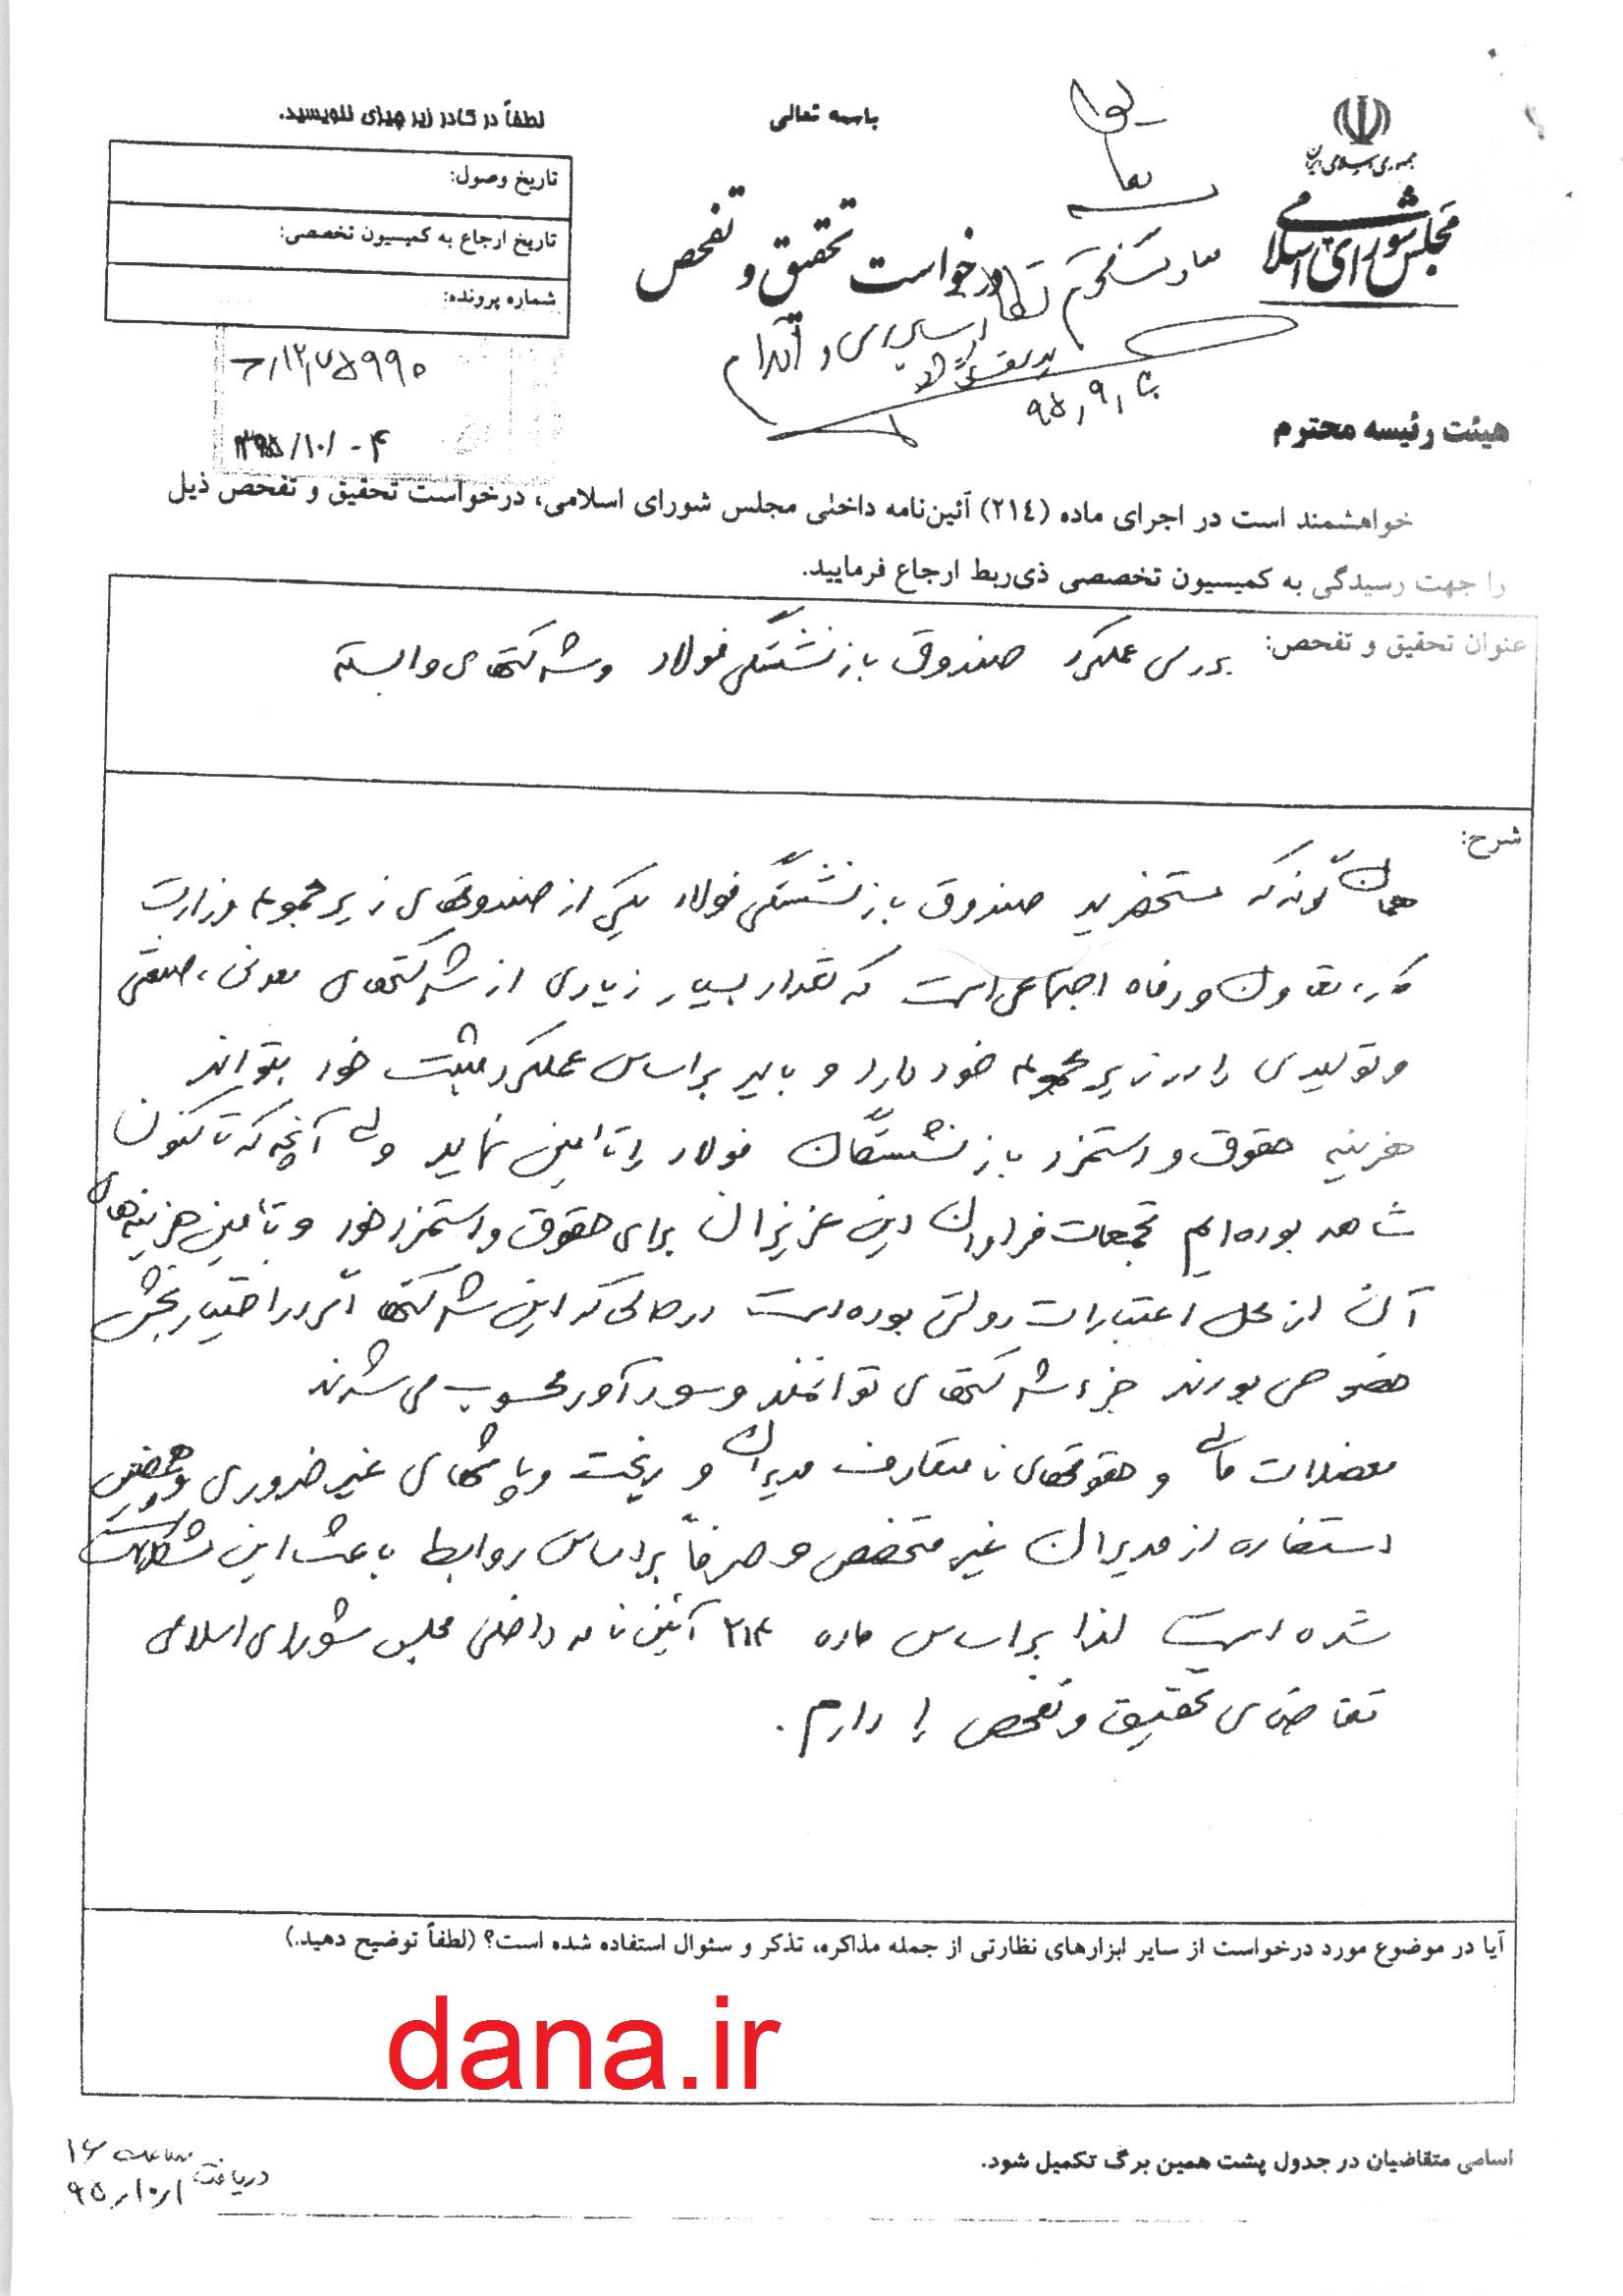 جمهوری اسلامی ایران
مجلس شورای اسلامی
باسمه تعالی
درخواست تحقیق و تفحص
لطفاً در کادر زیر چیزی ننویسید.
تاریخ وصول:
تاریخ ارجاع به کمیسیون تخصصی:
شماره پرونده:
۷۵۹۹۰
۱۳۹۵/۱۰/۰۴
معاونت محترم نظارت
و اقدام
۹۵٫۹٫
هیئت رئیسه محترم
خواهشمند است در اجرای ماده (۲۱۴) آئین‌نامه داخلی مجلس شورای اسلامی، درخواست تحقیق و تفحص ذیل
را جهت رسیدگی به کمیسیون تخصصی ذی‌ربط ارجاع فرمایید.
عنوان تحقیق و تفحص: بررسی عملکرد صندوق بازنشستگی فولاد و شرکتهای وابسته
شرح:
همان گونه که مستحضرید صندوق بازنشستگی فولاد یکی از صندوقهای زیر مجموعه وزارت
کار، تعاون و رفاه اجتماعی است که تعداد بسیار زیادی از شرکتهای معدنی، صنعتی
و تولیدی را در زیر مجموعه خود دارد و باید بر اساس عملکرد مثبت خود بتواند
هزینه حقوق و دستمزد بازنشستگان فولاد را تامین نماید ولی آنچه که تا کنون
شاهد بوده‌ایم تجمعات فراوان این عزیزان برای حقوق و دستمزد خود و تامین هزینه‌های
آن از محل اعتبارات دولتی بوده است در حالی که این شرکتها اگر در اختیار بخش
خصوصی بودند جزء شرکتهای توانمند و سود آور محسوب می شدند
معضلات مالی و حقوقهای نامتعارف مدیران و ریخت و پاشهای غیر ضروری و همچنین
استفاده از مدیران غیر متخصص و صرفاً بر اساس روابط باعث این مشکلات
شده است لذا بر اساس ماده ۲۱۴ آئین نامه داخلی مجلس شورای اسلامی
تقاضای تحقیق و تفحص را دارم.
آیا در موضوع مورد درخواست از سایر ابزارهای نظارتی از جمله مذاکره، تذکر و سئوال استفاده شده است؟ (لطفاً توضیح دهید.)
dana.ir
اسامی متقاضیان در جدول پشت همین برگ تکمیل شود.
ساعت ۱۶
دریافت ۹۵٫۱۰٫۱